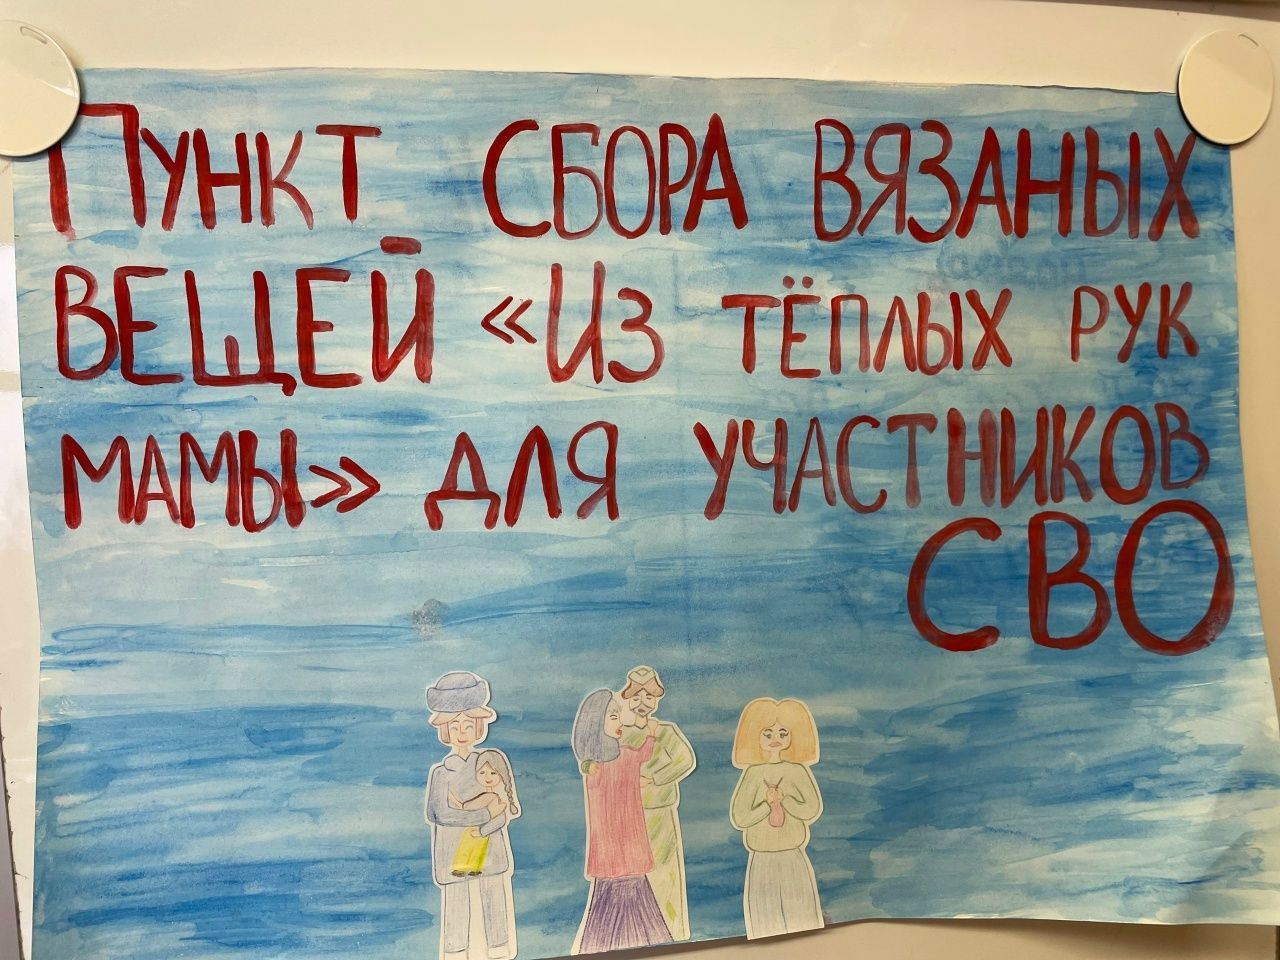 Пункт сбора вязаных
вещей «Из тёплых рук
мамы» для участников
СВО